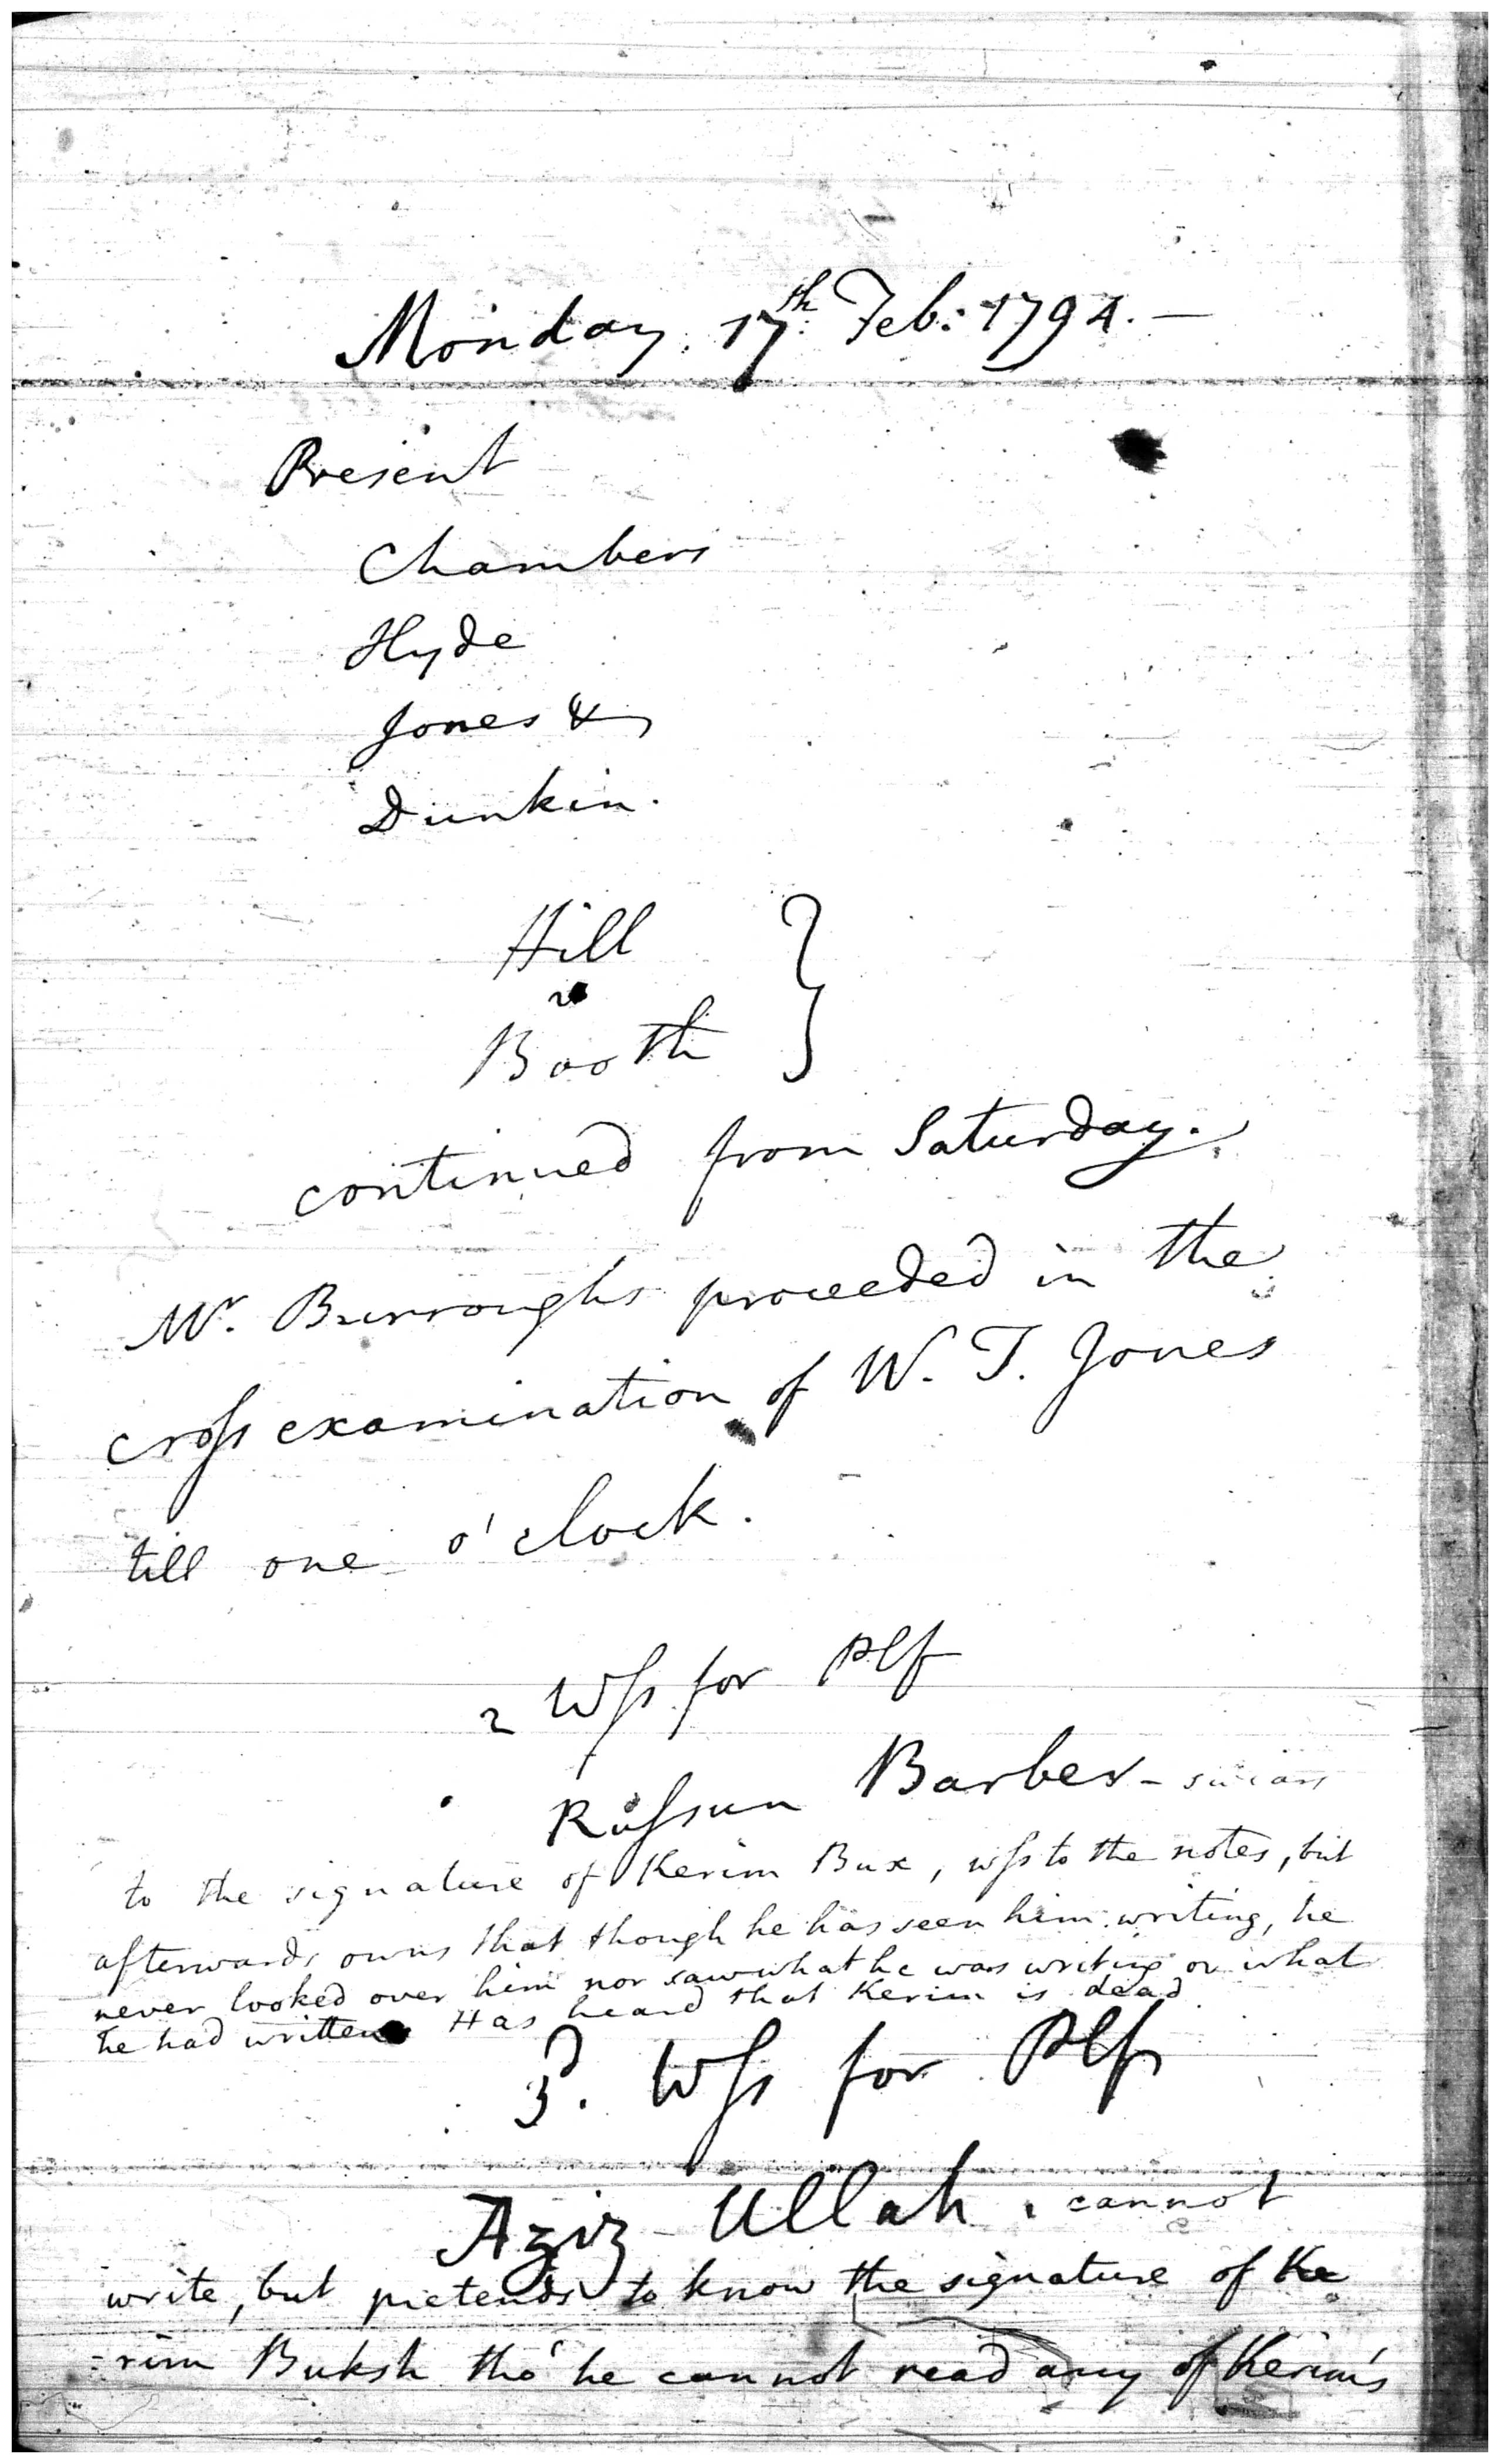 Monday. 17th. Feb: 1794. —
Present
Chambers
Hyde
Jones &
Dunkin.
Hill
v
Booth }
continued from Saturday.
Mr. Burroughs proceeded in the
cross examination of W. T. Jones
till one o'clock.
2 Wss for Plf
Russun Barber - swears
to the signature of Kerim Bux, wss to the notes, but
afterwards owns that though he has seen him writing, he
never looked over him nor saw what he was writing or what
he had written Has heard that Kerim is dead
3d. Wss for Plf
Aziz Ullah. cannot
write, but pretends to know the signature of Ke
-rim Buksh tho' he cannot read any of Kerim's